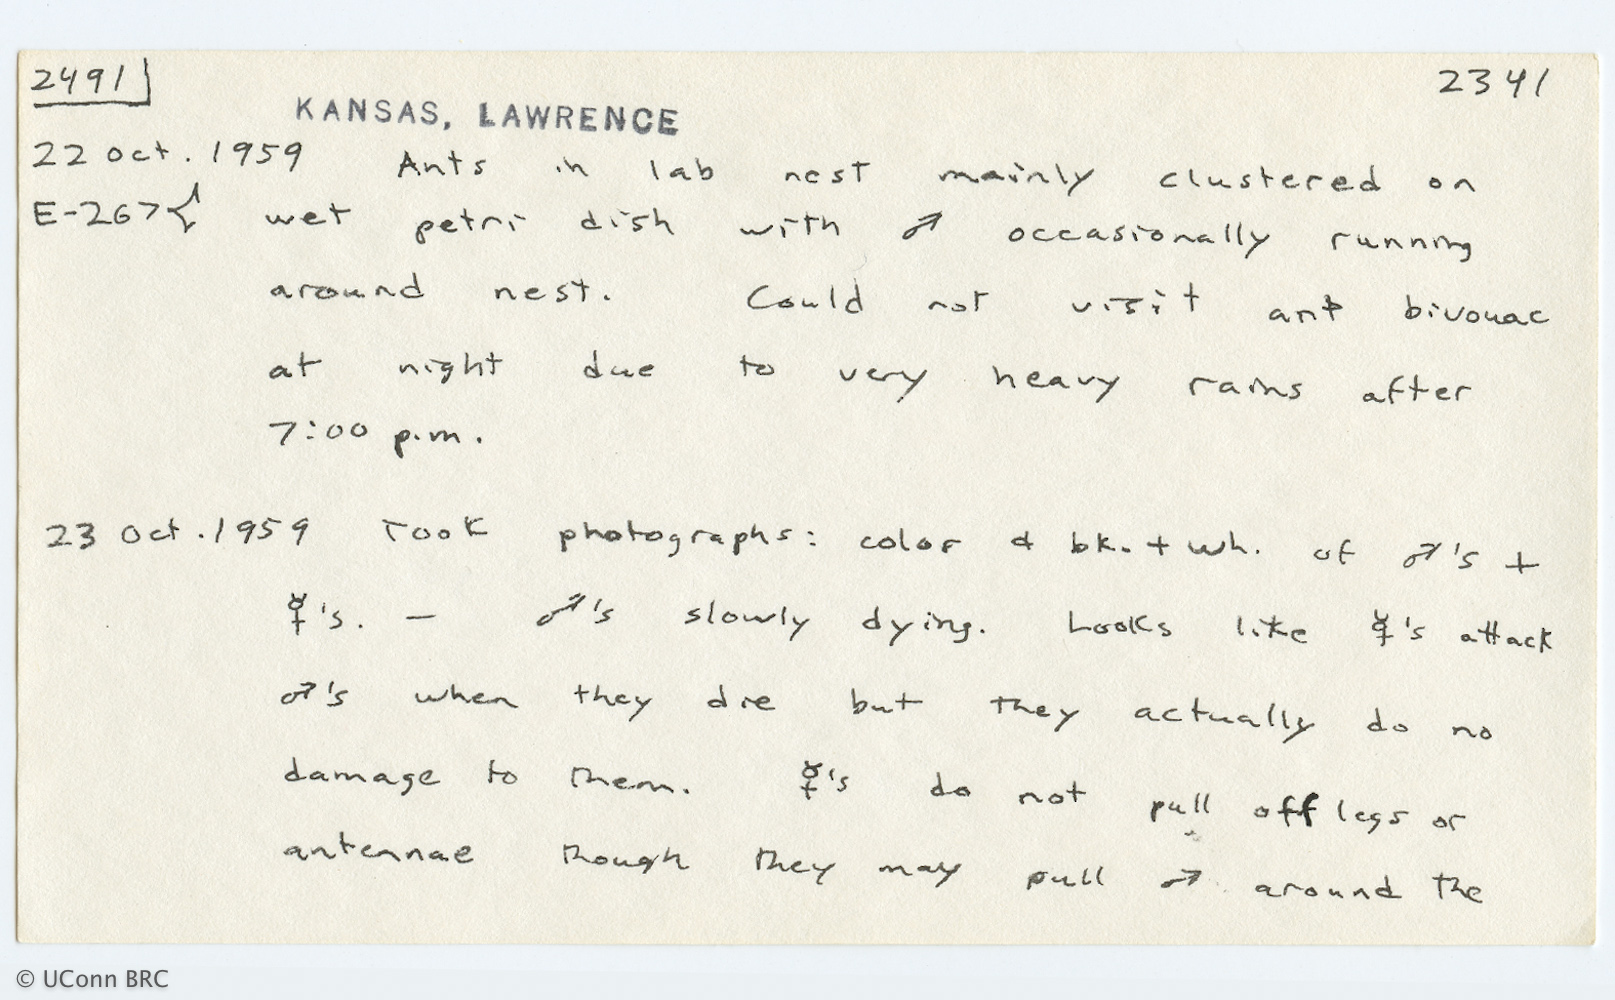 2491 2341
KANSAS, LAWRENCE
22 Oct. 1959 Ants in lab nest mainly clustered on
E-267 wet petri dish with ♂ occasionally running
around nest. Could not visit ant bivouac
at night due to very heavy rains after
7:00 p.m.
23 Oct. 1959 Took photographs: color & bk. + wh. of ♂'s +
☿'s. — ♂'s slowly dying. Looks like ☿'s attack
♂'s when they die but they actually do no
damage to them. ☿'s do not pull off legs or
antennae though they may pull ♂ around the
© UConn BRC